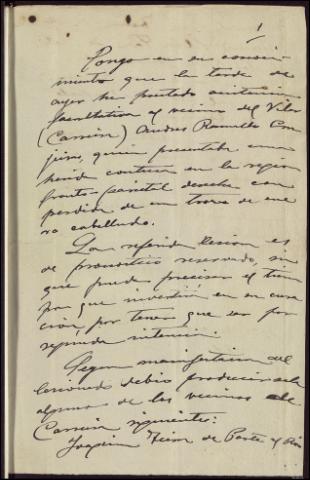 1
Pongo en su conoci-
miento que la tarde de
ayer he prestado asistencia
facultativa al vecino del Vilar
(Carreira) Andres Ramallo
quien presentaba una
herida contusa en la region
fronto-parietal derecha con
perdida de un trozo de cue-
ro cabelludo.
La referida lesion es
de pronostico reservado, sin
que pueda precisar el tiem-
po que invertirá en su cura
ción, por tener que ser por
segunda intención.
Segun manifestacion del
lesionado debio producirsela
alguno de los vecinos de
Carreira siguientes:
Joaquin de